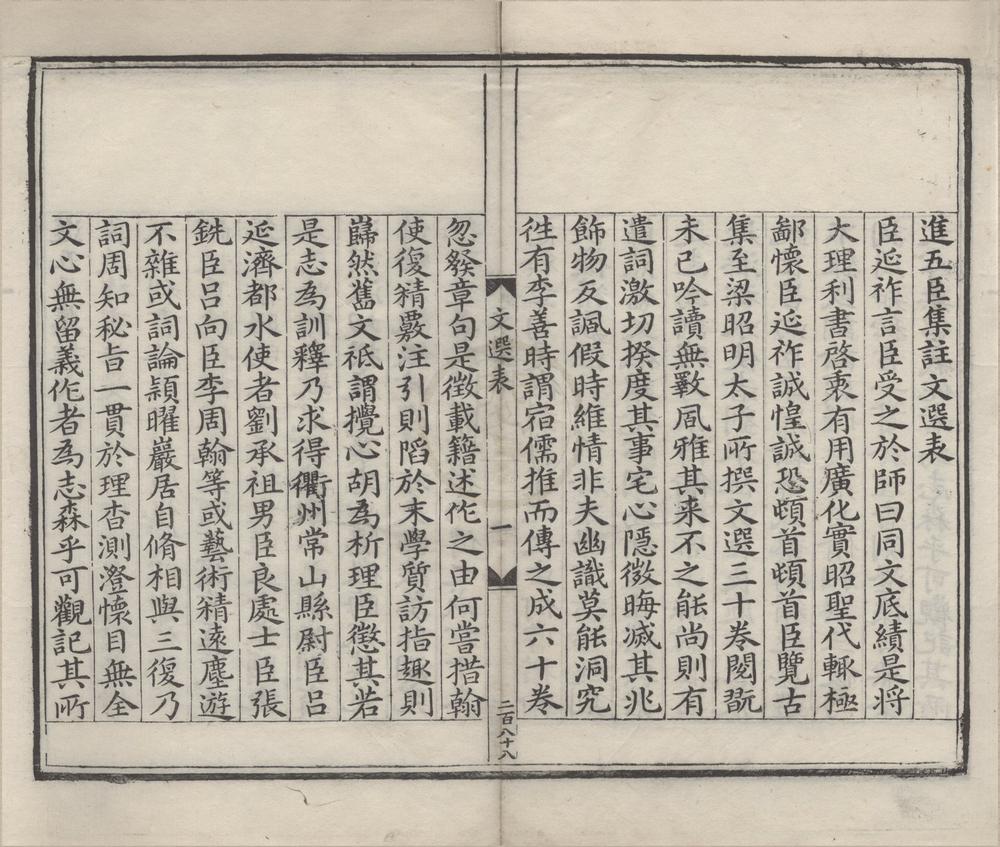 進五臣集註文選表
臣延祚言臣受之於師曰同文底績是將
大理利書啓衷有用廣化實昭聖代輙極
鄙懷臣延祚誠惶誠恐頓首頓首臣覽古
集至梁昭明太子所撰文選三十卷閱翫
未已吟讀無斁風雅其來不之能尚則有
遣詞激切揆度其事宅心隱微晦滅其兆
飾物反諷假時維情非夫幽識莫能洞究
徃有李善時謂宿儒推而傳之成六十卷
文選表
一
二百八十八
忽發章句是徵載籍述作之由何嘗措翰
使復精覈注引則陷於末學質訪指趣則
巋然舊文祇謂攪心胡為析理臣懲其若
是志為訓釋乃求得衢州常山縣尉臣呂
延濟都水使者劉承祖男臣良處士臣張
銑臣呂向臣李周翰等或藝術精遠塵遊
不雜或詞論穎曜巖居自脩相與三復乃
詞周知秘旨一貫於理杳測澄懷目無全
文心無留義作者為志森乎可觀記其所